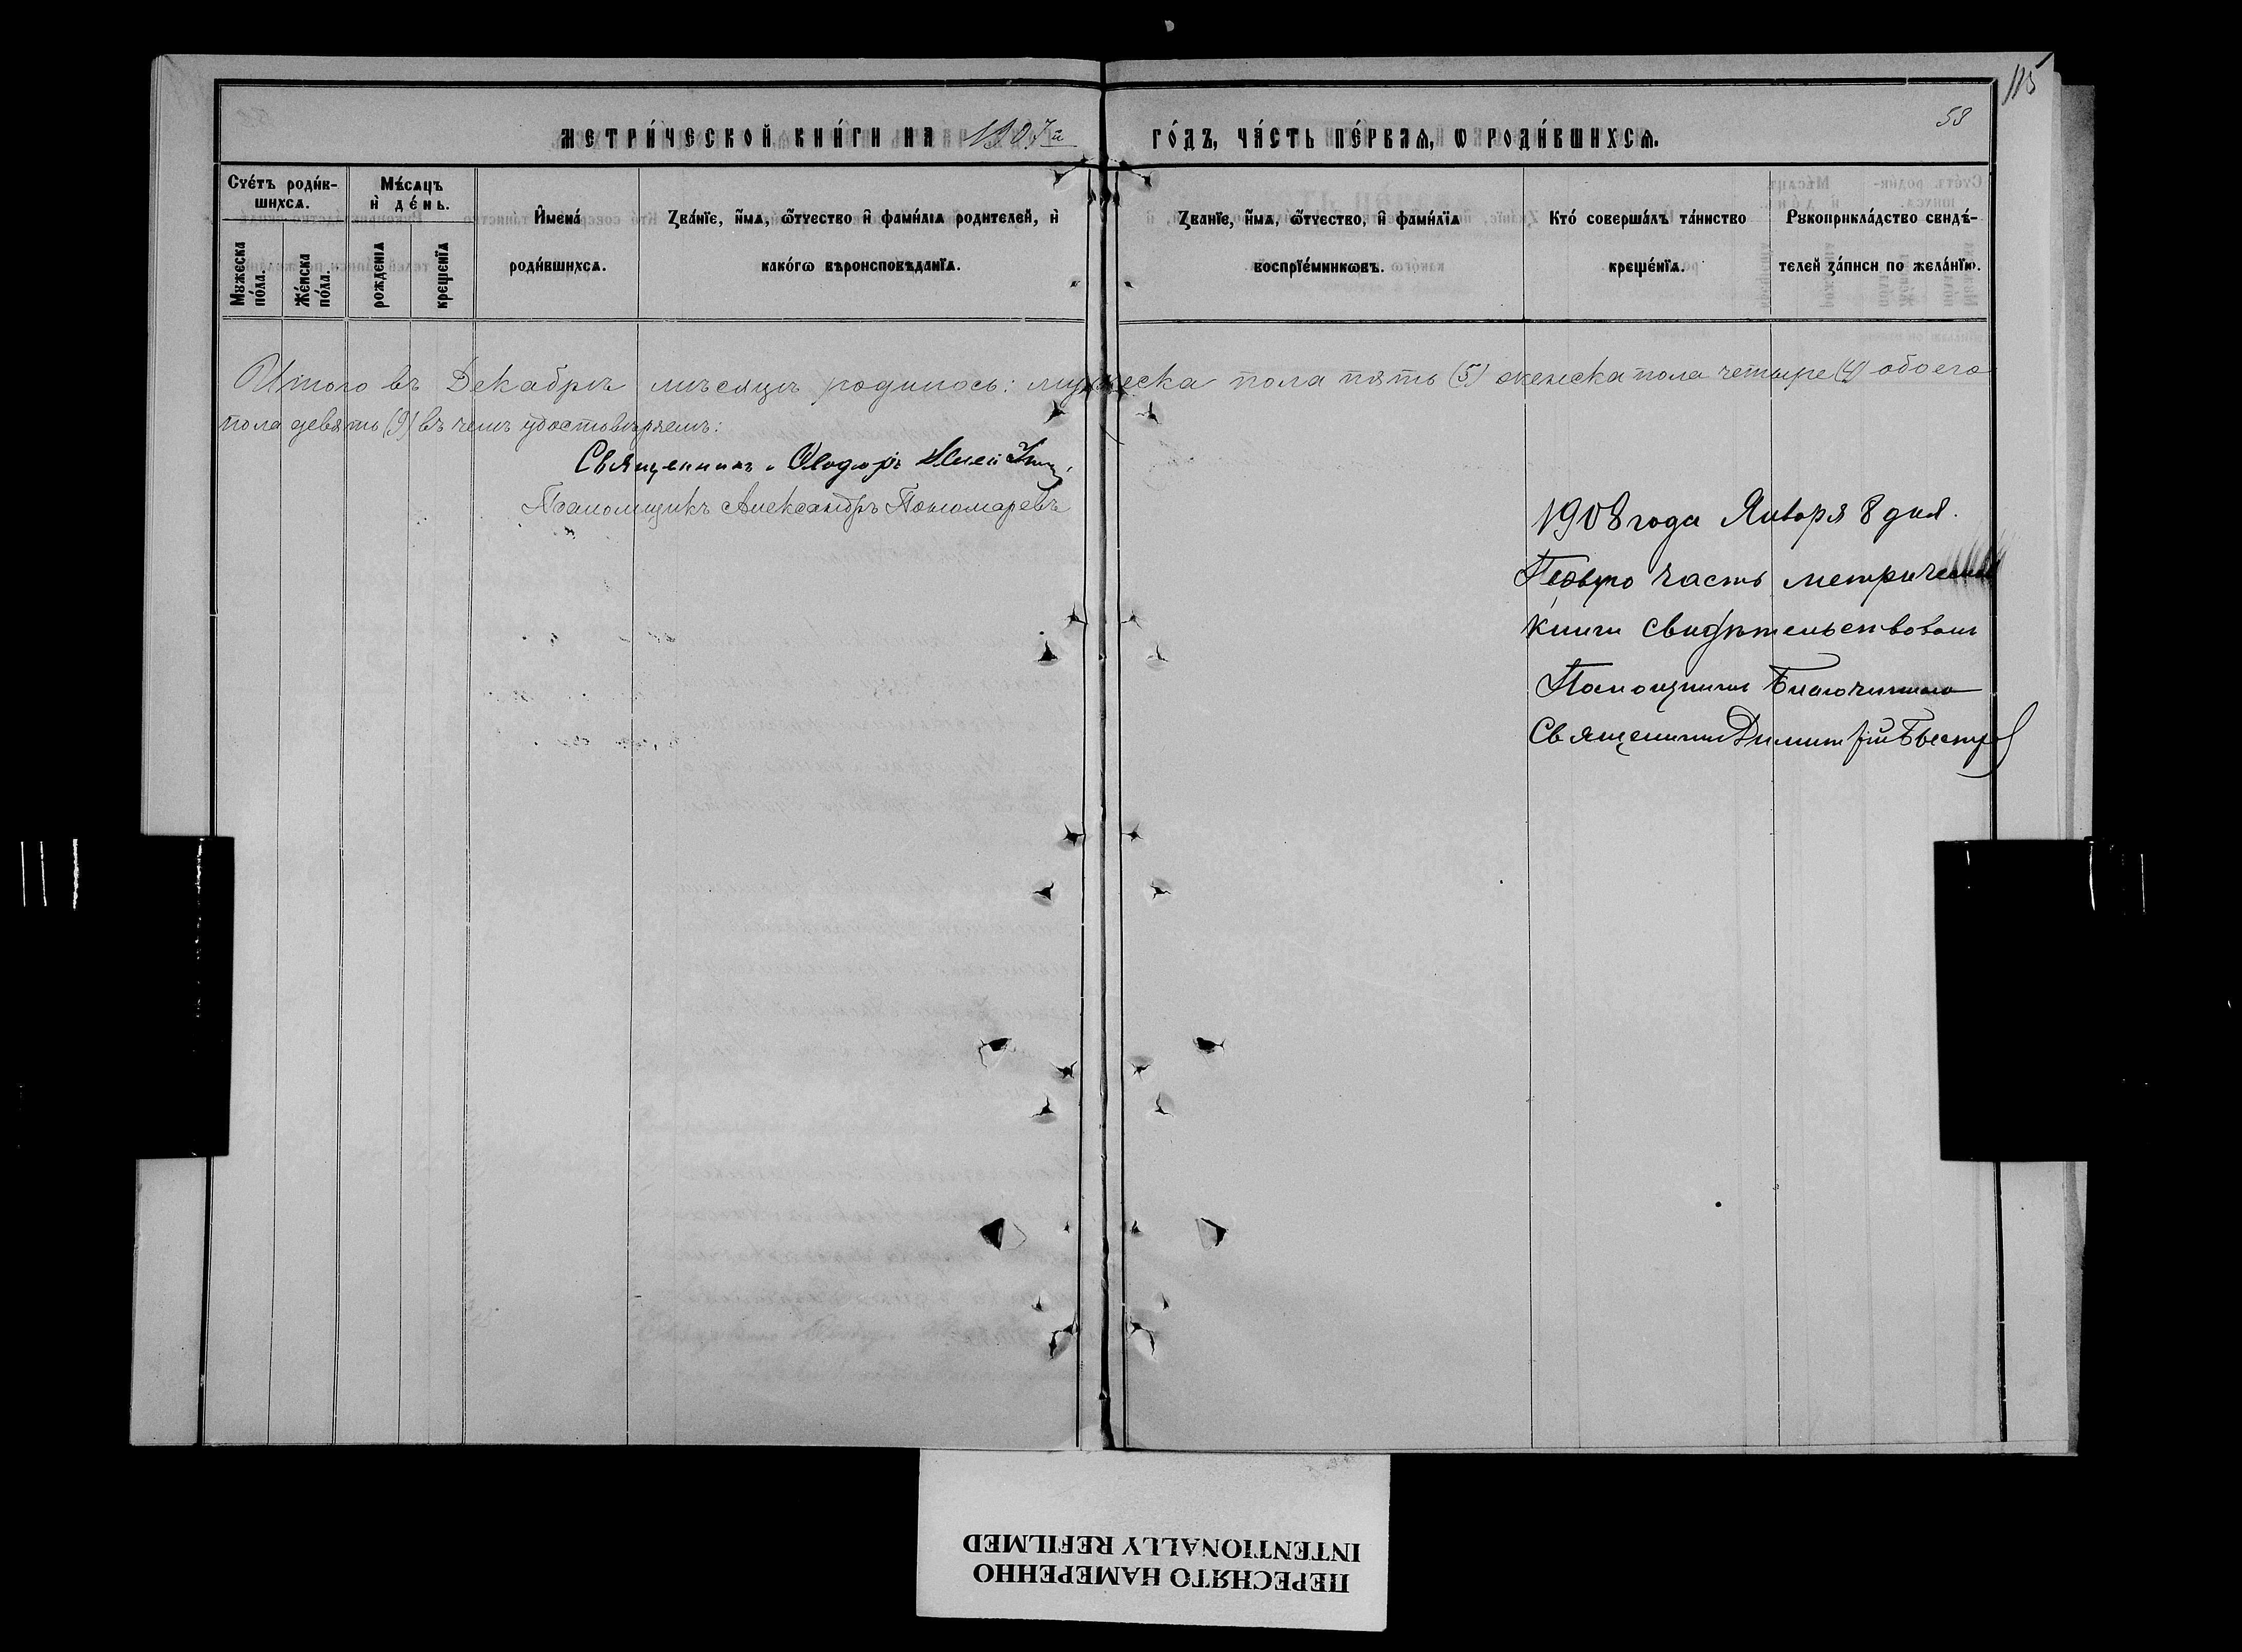 115
58
МЕТРИ́ЧЕСКОЙ КНИ́ГИ НА 1907й ГО́ДЪ, ЧА́СТЬ ПЕ́РВАѦ, Ѡ РОДИ́ВШИХСѦ.
Сче́тъ роди́в-
шихсѧ.
Мꙋжеска
по́ла.
Же́нска
по́ла.
Мѣ́сѧцъ
и҆ де́нь.
рожденїѧ
крещенїѧ
И҆мена́
роди́вшихсѧ.
Зва́нїе, и҆́мѧ, ѻ҆́тчество и҆ фами́лїѧ родителей, и҆
како́гѡ вѣроисповѣданїѧ.
Зва́нїе, и҆́мѧ, ѻ҆́тчество, и҆ фами́лїѧ
воспрїе́мникѡвъ.
Кто́ соверша́лъ та́инство
креще́нїѧ.
Рꙋкоприкла́дство свидѣ́-
телей за́писи по жела́нїю.
Итого въ Декабрѣ мѣсяцѣ родилось: мужеска пола пять (5) женска пола четыре (4) обоего
пола девять (9) въ чемъ удостовѣряемъ:
Священникъ Ѳеодоръ
Псаломщикъ Александръ Пономаревъ
1908 года Января 8 дня.
Первую часть метрической
книги свидѣтельствовалъ
Помощникъ Благочиннаго
Священникъ Димитрій Быстро
ПЕРЕСНЯТО НАМЕРЕННО
INTENTIONALLY REFILMED